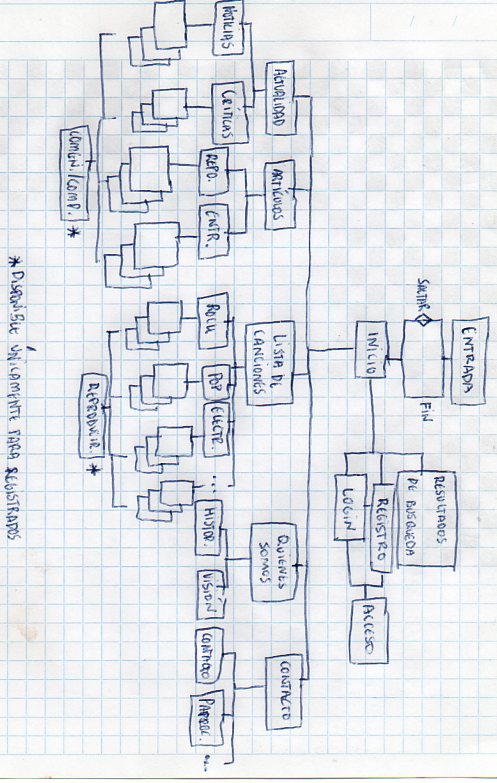 ENTRADA
SALTAR
FIN
RESULTADOS
DE BUSQUEDA
INICIO
REGISTRO
LOGIN
ACCESO
ACTUALIDAD
ARTÍCULOS
LISTA DE
CANCIONES
QUIENES
SOMOS
CONTACTO
NOTICIAS
CRÍTICAS
REPO.
ENTR.
ROCK
POP
ELECTR.
...
HISTOR.
VISIÓN
CONTACTO
PATROC.
...
COMEN./COMP. *
REPRODUCIR. *
* DISPONIBLE ÚNICAMENTE PARA REGISTRADOS